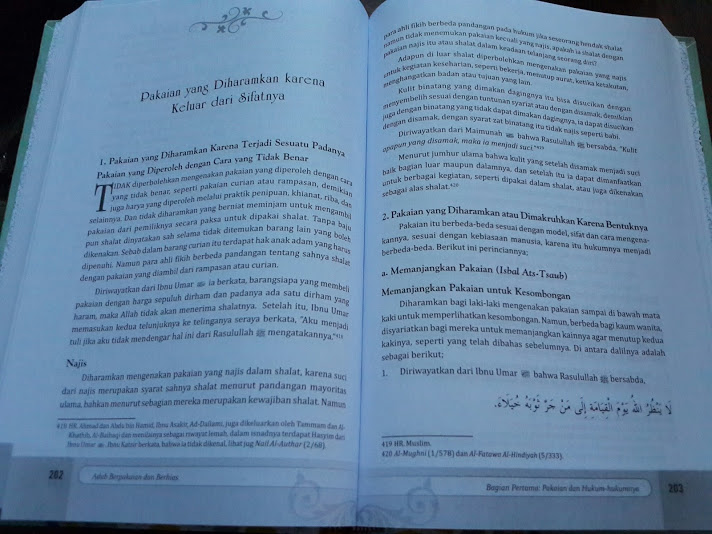 Pakaian yang Diharamkan karena
Keluar dari Sifatnya
1. Pakaian yang Diharamkan Karena Terjadi Sesuatu Padanya
Pakaian yang Diperoleh dengan Cara yang Tidak Benar
TIDAK diperbolehkan mengenakan pakaian yang diperoleh dengan cara
yang tidak benar, seperti pakaian curian atau rampasan, demikian
juga harga yang diperoleh melalui praktik penipuan, khianat, riba, dan
selainnya. Dan tidak diharamkan yang berniat meminjam untuk mengambil
pakaian dari pemiliknya secara paksa untuk dipakai shalat. Tanpa baju
pun shalat dinyatakan sah selama tidak ditemukan barang lain yang boleh
dikenakan. Sebab dalam barang curian itu terdapat hak anak adam yang harus
dipenuhi. Namun para ahli fikih berbeda pandangan tentang sahnya shalat
dengan pakaian yang diambil dari rampasan atau curian.
Diriwayatkan dari Ibnu Umar ؓ ia berkata, barangsiapa yang membeli
pakaian dengan harga sepuluh dirham dan padanya ada satu dirham yang
haram, maka Allah tidak akan menerima shalatnya. Setelah itu, Ibnu Umar
memasukan kedua telunjuknya ke telinganya seraya berkata, "Aku menjadi
tuli jika aku tidak mendengar hal ini dari Rasulullah ﷺ mengatakannya."418
Najis
Diharamkan mengenakan pakaian yang najis dalam shalat, karena suci
dari najis merupakan syarat sahnya shalat menurut pandangan mayoritas
ulama, bahkan menurut sebagian mereka merupakan kewajiban shalat. Namun
418 HR. Ahmad dan Abdu bin Hamid, Ibnu Asakir, Ad-Dailami, juga dikeluarkan oleh Tammam dan Al-
Khathib, Al-Baihaqi dan menilainya sebagai riwayat lemah, dalam isnadnya terdapat Hasyim dari
Ibnu Umar ؓ. Ibnu Katsir berkata, bahwa ia tidak dikenal, lihat jug Nail Al-Authar (2/68).
202 Adab Berpakaian dan Berhias
para ahli fikih berbeda pandangan pada hukum jika seseorang hendak shalat
namun tidak menemukan pakaian kecuali yang najis, apakah ia shalat dengan
pakaian najis itu atau shalat dalam keadaan telanjang seorang diri?
Adapun di luar shalat diperbolehkan mengenakan pakaian yang najis
untuk kegiatan keseharian, seperti bekerja, menutup aurat, ketika ketakutan,
menghangatkan badan atau tujuan yang lain.
Kulit binatang yang dimakan dagingnya itu bisa disucikan dengan
menyembelih sesuai dengan tuntunan syariat atau dengan disamak, demikian
juga dengan binatang yang tidak dapat dimakan dagingnya, ia dapat disucikan
dengan disamak, dengan syarat zat binatang itu tidak najis seperti babi.
Diriwayatkan dari Maimunah ؓ bahwa Rasulullah ﷺ bersabda, "Kulit
apapun yang disamak, maka ia menjadi suci."419
Menurut jumhur ulama bahwa kulit yang setelah disamak menjadi suci
baik bagian luar maupun dalamnya, dan setelah itu ia dapat dimanfaatkan
untuk berbagai kegiatan, seperti dipakai dalam shalat, atau juga dikenakan
sebagai alas shalat.420
2. Pakaian yang Diharamkan atau Dimakruhkan Karena Bentuknya
Pakaian itu berbeda-beda sesuai dengan model, sifat dan cara mengena-
kannya, sesuai dengan kebiasaan manusia, karena itu hukumnya menjadi
berbeda-beda. Berikut ini perinciannya;
a. Memanjangkan Pakaian (Isbal Ats-Tsaub)
Memanjangkan Pakaian untuk Kesombongan
Diharamkan bagi laki-laki mengenakan pakaian sampai di bawah mata
kaki untuk memperlihatkan kesombongan. Namun, berbeda bagi kaum wanita,
disyariatkan bagi mereka untuk memanjangkan kainnya agar menutup kedua
kakinya, seperti yang telah dibahas sebelumnya. Di antara dalilnya adalah
sebagai berikut;
1. Diriwayatkan dari Ibnu Umar ؓ bahwa Rasulullah ﷺ bersabda,
لَا يَنْظُرُ اللهُ يَوْمَ الْقِيَامَةِ إِلَى مَنْ جَرَّ ثَوْبَهُ خُيَلَاءَ.
419 HR. Muslim.
420 Al-Mughni (1/578) dan Al-Fatawa Al-Hindiyah (5/333).
Bagian Pertama: Pakaian dan Hukum-hukumnya 203